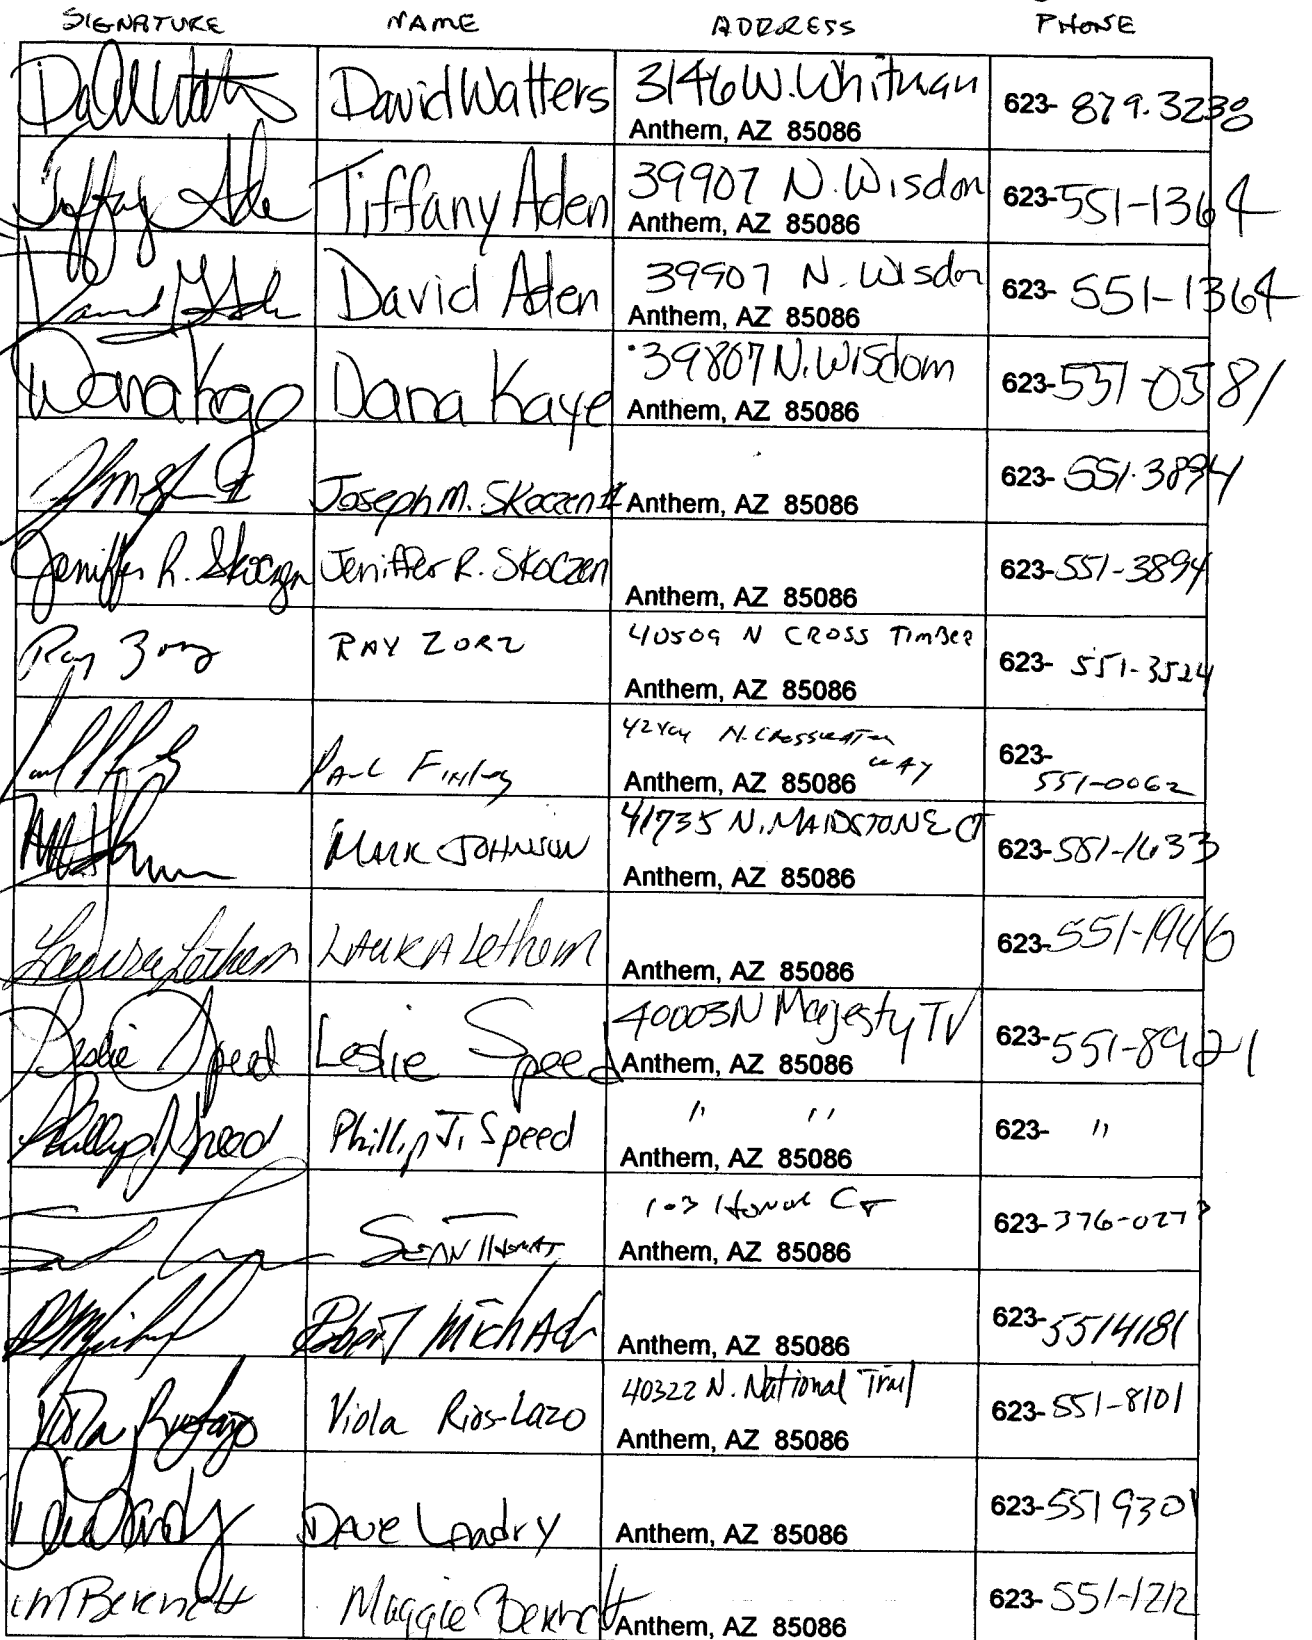 SIGNATURE NAME ADDRESS PHONE
David Watters 3146 W. Whitman
Anthem, AZ 85086 623- 879.3238
Tiffany Aden 39907 N. Wisdom
Anthem, AZ 85086 623-551-1364
David Aden 39907 N. Wisdom
Anthem, AZ 85086 623- 551-1364
Dana Kaye 39807 N. Wisdom
Anthem, AZ 85086 623-551-0581
Joseph M. Skoczen II Anthem, AZ 85086 623- 551-3894
Jeniffer R. Skoczen Jeniffer R. Skoczen
Anthem, AZ 85086 623-551-3894
Ray Zorz RAY ZORZ 40509 N CROSS TIMBER
Anthem, AZ 85086 623- 551-3524
Paul Finley N. Crosswater
way
Anthem, AZ 85086 623-
551-0062
MARK JOHNSON 41735 N. MAIDSTONE CT
Anthem, AZ 85086 623-581-1633
Laura Lethem LAURA Lethem
Anthem, AZ 85086 623-551-1946
Leslie Speed Leslie Speed 40003 N Majesty Tr
Anthem, AZ 85086 623-551-8921
Phillip J Speed Phillip J. Speed " "
Anthem, AZ 85086 623- "
Sean 103 Honor Ct
Anthem, AZ 85086 623-376-0273
Robert Michael
Anthem, AZ 85086 623-5514181
Viola Rios-Lazo 40322 N. National Trail
Anthem, AZ 85086 623-551-8101
Dave Landry Dave Landry
Anthem, AZ 85086 623-551 9301
M Bennett Maggie Bennett
Anthem, AZ 85086 623- 551-1212